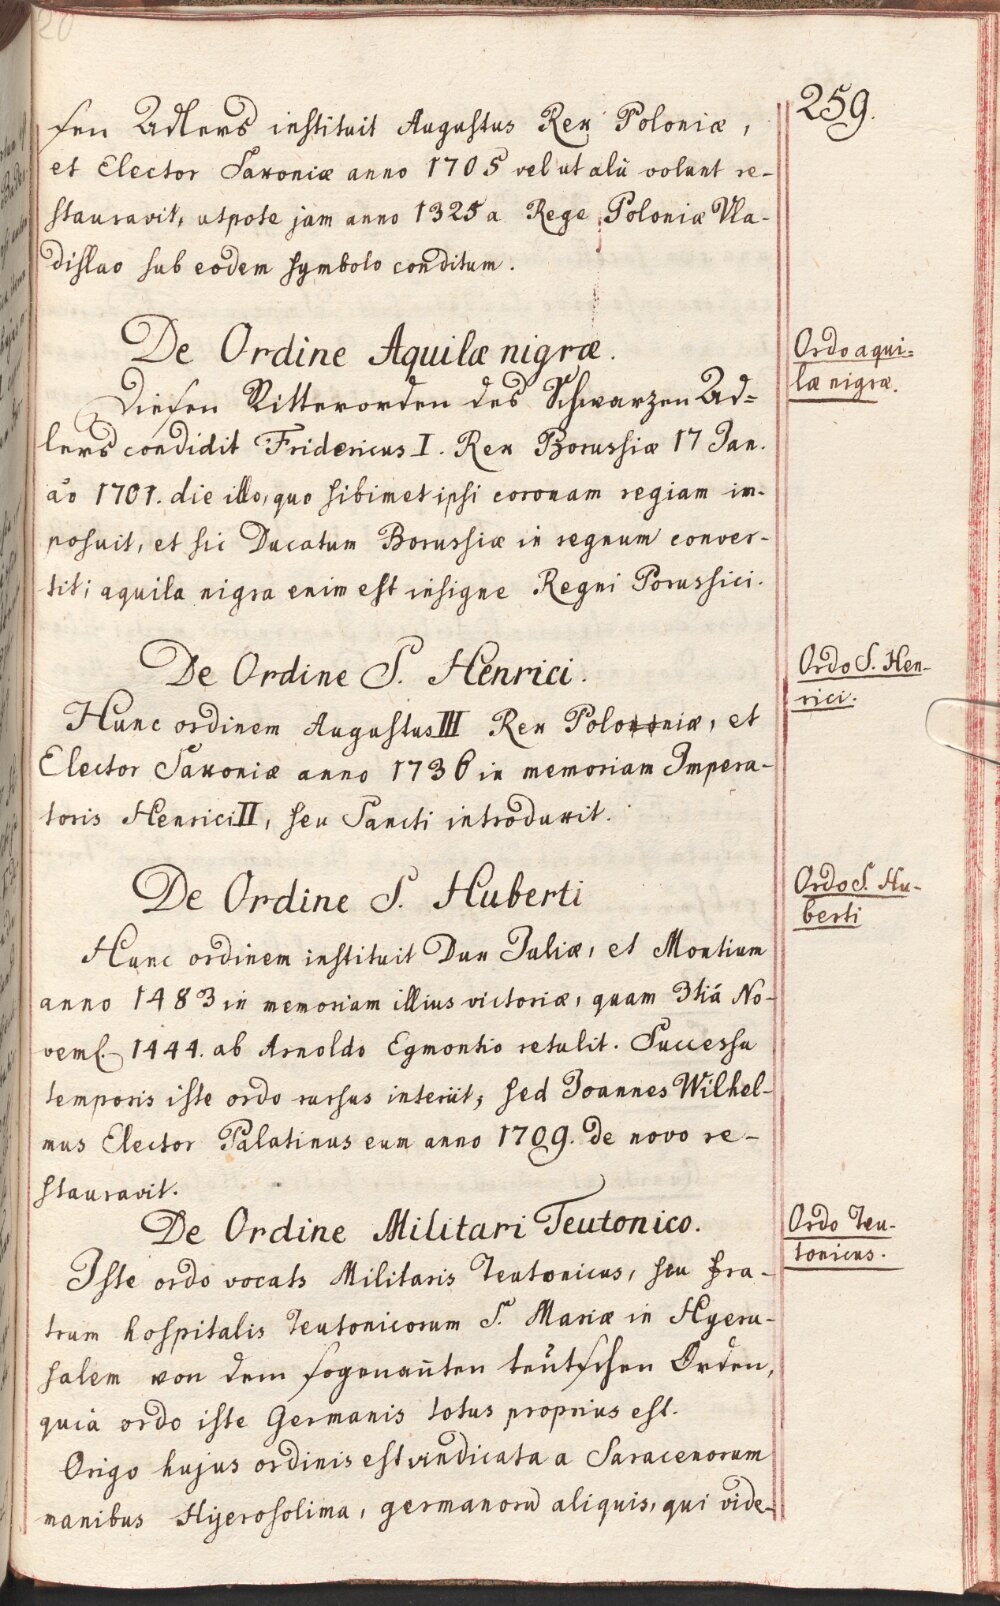 259.
sen Adlers instituit Augustus Rex Poloniæ,
et Elector Saxoniæ anno 1705 vel ut alii volunt re-
stauravit, utpote jam anno 1325 a Rege Poloniæ Vla-
dislao sub eodem symbolo conditum.
De Ordine Aquilæ nigræ.
Ordo aqui=
læ nigræ.
Diesen Ritterorden des Schwarzen Ad=
lers condidit Fridericus I. Rex Borussiæ 17 Jan.
aō 1701. die illo, quo sibimet ipsi coronam regiam im-
posuit, et sic Ducatum Borussiæ in regnum conver-
tit; aquila nigra enim est insigne Regni Porussici.
De Ordine S. Henrici.
Ordo S. Hen-
rici.
Hunc ordinem Augustus III Rex Poloniæ, et
Elector Saxoniæ anno 1736 in memoriam Impera-
toris Henrici II, seu Sancti introduxit.
De Ordine S. Huberti
Ordo S. Hu-
berti
Hunc ordinem instituit Dux Juliæ, et Montium
anno 1483 in memoriam illius victoriæ, quam 3tiâ No-
vemb. 1444. ab Arnoldo Egmontio retulit. Successu
temporis iste ordo rursus interiit, sed Joannes Wilhel-
mus Elector Palatinus eum anno 1709. de novo re-
stauravit.
De Ordine Militari Teutonico.
Ordo Teu-
tonicus.
Iste ordo vocats Militaris Teutonicus, seu Fra-
trum hospitalis Teutonicorum S. Mariæ in Hyeru-
salem von dem sogenan̄ten teütschen Orden,
quia ordo iste Germanis totus proprius est.
Origo hujus ordinis est vindicata a Saracenorum
manibus Hyerosolima, germanorū aliquis, qui vide-